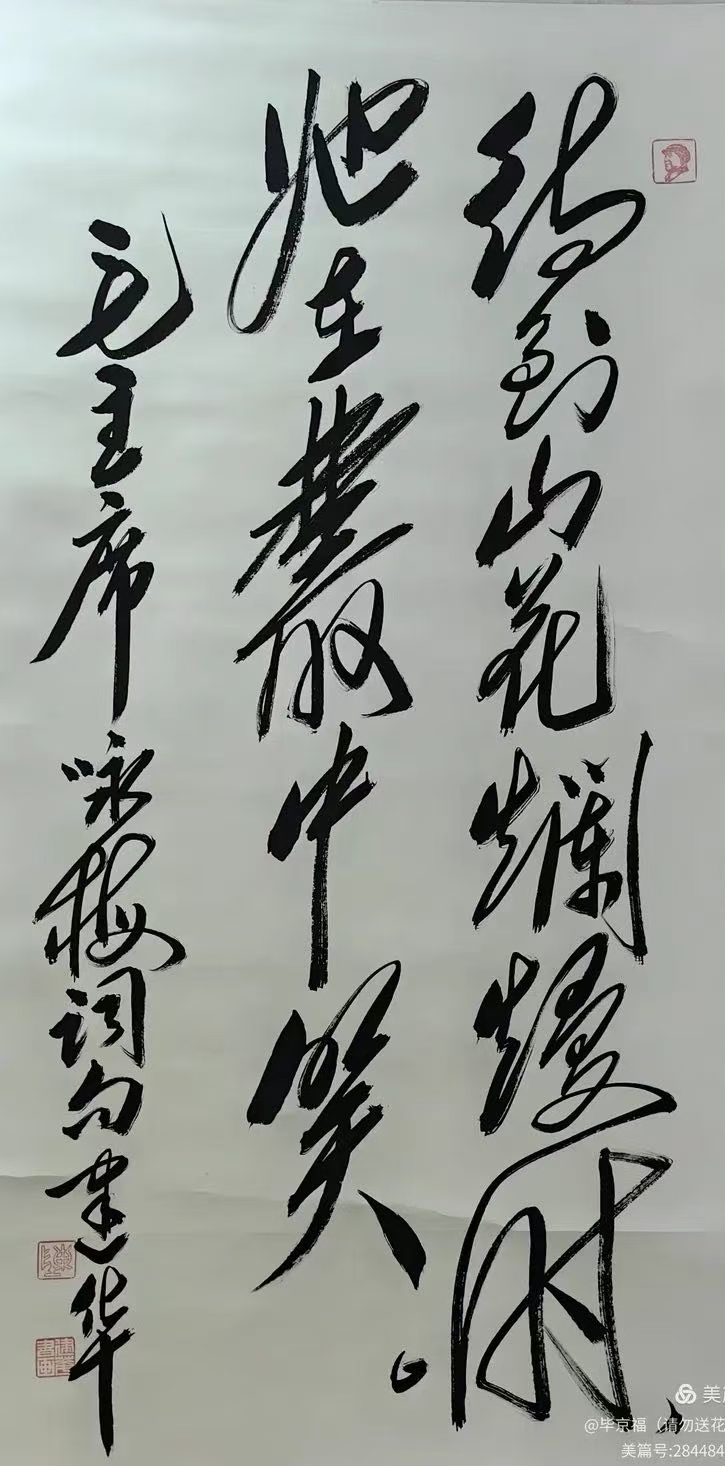 待到山花爛熳时、
她在叢中笑。
毛主席咏梅词句建华
美
@毕京福（请勿送花
美篇号:284484